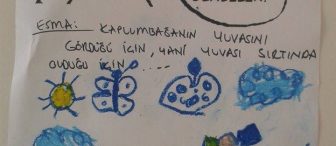 ESMA: KAPLUMBAĞANIN YUVASINI
GÖRDÜĞÜ İÇİN, YANİ YUVASI SIRTINDA
OLDUĞU İÇİN .....